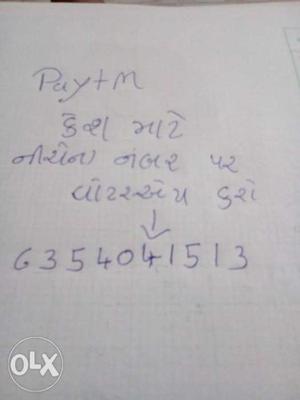 Paytm
કેશ માટે
નીચેના નંબર પર
વોટસએપ કરો
6354041513
OLX